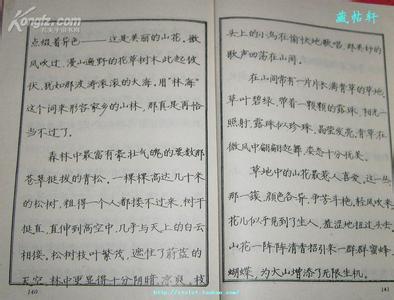 点缀着异色——这是美丽的山花。微
风吹过,漫山遍野的花草树木此起彼
伏,犹如那波涛滚滚的大海。用"林海"
这个词来形容家乡的山林,那真是再恰
当不过了。
森林中最富有豪壮气魄的要数那
苍翠挺拔的青松。一棵棵高达几十米
的松树,粗得一个人都搂不过来,树干
挺直,直伸到高空中,几乎与天上的白云
相接,松树枝叶繁茂,遮住了蔚蓝的
天空,林中更显得十分阴暗、凉爽,枝
140
头上的小鸟在愉快地歌唱,那美妙的
歌声回荡在山间。
在山间带有一片片长满青草的草地,
草叶碧绿,带着一颗颗的露珠,阳光一
照射,露珠似珍珠,晶莹发亮,青草在
微风中翩翩起舞,姿态十分优美。
草地中的山花最惹人喜爱,这一丛,
那一簇,颜色各异,争芳斗艳,轻风吹来,
花儿似乎见到了生人,羞涩地扭过头去。
山花一阵阵清香招引来一群群蜜蜂、
蝴蝶,为大山增添了无限生机。
141
藏帖轩